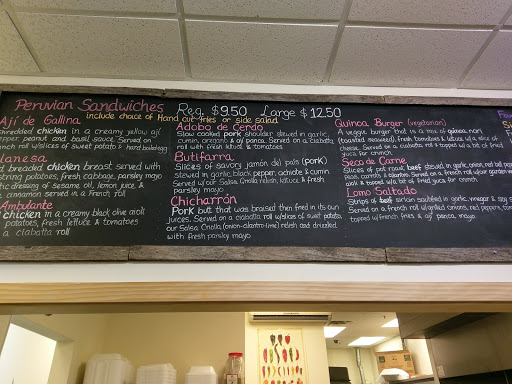 Peruvian Sandwiches Reg. $9.50 Large $12.50
include choice of Hand cut fries or side salad
Ají de Gallina
shredded chicken in a creamy yellow ají
pepper, peanut and basil sauce. Served on
french roll w/slices of sweet potato & hard boiled egg
lanesa
breaded chicken breast served with
string potatoes, fresh cabbage, parsley mayo
dressing of sesame oil, lemon juice, &
cinnamon served in a French roll
Ambulante
chicken in a creamy black olive aioli
potatoes, fresh lettuce & tomatoes
a ciabatta roll
Adobo de Cerdo
Slow cooked pork shoulder stewed in garlic,
cumin, oregano & ají panca. Served on a ciabatta
roll with fresh lettuce & tomatoes
Butifarra
Slices of savory jamón del país (pork)
stewed in garlic, black pepper, achiote & cumin
Served w/our Salsa Criolla relish, lettuce & fresh
parsley mayo
Chicharrón
Pork butt that was braised then fried in its own
juices. Served on a ciabatta roll w/slices of sweet potato,
our Salsa Criolla (onion-cilantro-lime) relish and drizzled
with fresh parsley mayo
Quinoa Burger (vegetarian)
A veggie burger that is a mix of quinoa, nori
(toasted seaweed), fresh tomatoes & lettuce w/a slice of
cheese. Served on a ciabatta roll & topped w/a bit of fried
yuca for crunch.
Seco de Carne
Slices of pot roast beef stewed in garlic, onion, red bell
peas, carrots & cilantro. Served on a french roll w/our garden
aioli & topped w/a bit of fried yuca for crunch.
Lomo Saltado
Strips of beef sirloin sautéed in garlic, vinegar & soy
Served on a french roll w/grilled onions, red peppers,
topped w/french fries & ají panca mayo